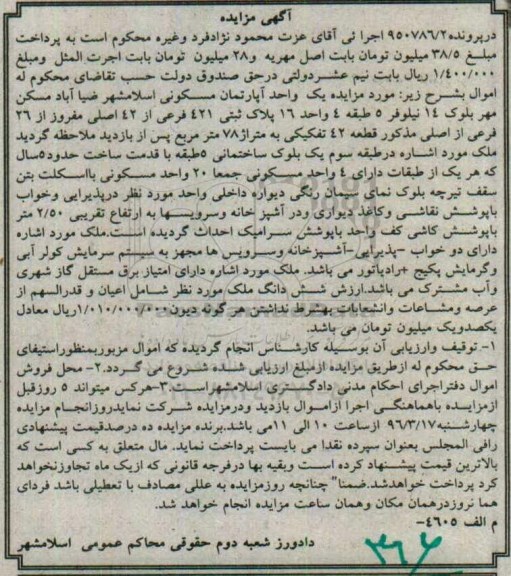 آگهی مزایده
درپرونده۹۵۰۷۸۶/۲ اجرا ئی آقای عزت محمود نژادفرد وغیره محکوم است به پرداخت
مبلغ ۳۸/۵ میلیون تومان بابت اصل مهریه و۲۸ میلیون تومان بابت اجرت المثل ومبلغ
۱/۴۰۰/۰۰۰ ریال بابت نیم عشردولتی درحق صندوق دولت حسب تقاضای محکوم له
اموال بشرح زیر: مورد مزایده یک واحد آپارتمان مسکونی اسلامشهر ضیا آباد مسکن
مهر بلوک ۱۴ نیلوفر ۵ طبقه ۴ واحد ۱۶ پلاک ثبتی ۴۲۱ فرعی از ۴۲ اصلی مفروز از ۲۶
فرعی از اصلی مذکور قطعه ۴۲ تفکیکی به متراژ۷۸ متر مربع پس از بازدید ملاحظه گردید
ملک مورد اشاره درطبقه سوم یک بلوک ساختمانی ۵طبقه با قدمت ساخت حدود۵سال
که هر یک از طبقات دارای ۴ واحد مسکونی جمعا ۲۰ واحد مسکونی بااسکلت بتن
سقف تیرچه بلوک نمای سیمان رنگی دیواره داخلی واحد مورد نظر درپذیرایی وخواب
باپوشش نقاشی وکاغذ دیواری ودر آشپز خانه وسرویسها به ارتفاع تقریبی ۲/۵۰ متر
باپوشش کاشی کف واحد باپوشش سرامیک احداث گردیده است.ملک مورد اشاره
دارای دو خواب -پذیرایی-آشپزخانه وسرویس ها مجهز به سیستم سرمایش کولر آبی
وگرمایش پکیج +رادیاتور می باشد. ملک مورد اشاره دارای امتیاز برق مستقل گاز شهری
وآب مشترک می باشد.ارزش شش دانگ ملک مورد نظر شامل اعیان و قدرالسهم از
عرصه ومشاعات وانشعابات بهشرط نداشتن هر گونه دیون ۱/۰۱۰/۰۰۰/۰۰۰ریال معادل
یکصدویک میلیون تومان می باشد.
۱- توقیف وارزیابی آن بوسیله کارشناس انجام گردیده که اموال مزبوربمنظوراستیفای
حق محکوم له ازطریق مزایده ازمبلغ ارزیابی شده شروع می گردد.۲- محل فروش
اموال دفتراجرای احکام مدنی دادگستری اسلامشهراست.۳-هرکس میتواند ۵ روزقبل
ازمزایده باهماهنگی اجرا ازاموال بازدید ودرمزایده شرکت نمایدروزانجام مزایده
چهارشنبه۹۶/۳/۱۷ ازساعت ۱۰ الی ۱۱می باشد.برنده مزایده ده درصدقیمت پیشنهادی
رافی المجلس بعنوان سپرده نقدا می بایست پرداخت نماید. مال متعلق به کسی است که
بالاترین قیمت پیشنهاد کرده است وبقیه بها درفرجه قانونی که ازیک ماه تجاوزنخواهد
کرد پرداخت خواهدشد.ضمنا" چنانچه روزمزایده به عللی مصادف با تعطیلی باشد فردای
هما نروزدرهمان مکان وهمان ساعت مزایده انجام خواهد شد.
م الف ۴۶۰۵-
دادورز شعبه دوم حقوقی محاکم عمومی اسلامشهر